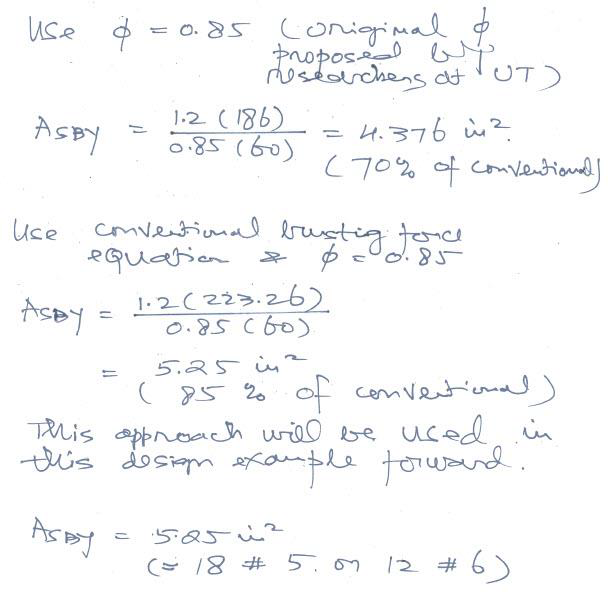 Use ϕ = 0.85 (original ϕ
proposed by
researchers at UT)
AsBy = 1.2 (186) / 0.85 (60) = 4.376 in².
(70% of conventional)
Use conventional bursting force
equation & ϕ = 0.85
AsBy = 1.2 (223.26) / 0.85 (60)
= 5.25 in²
(85 % of conventional)
This approach will be used in
this design example forward.
AsBy = 5.25 in²
(= 18 # 5. or 12 # 6)